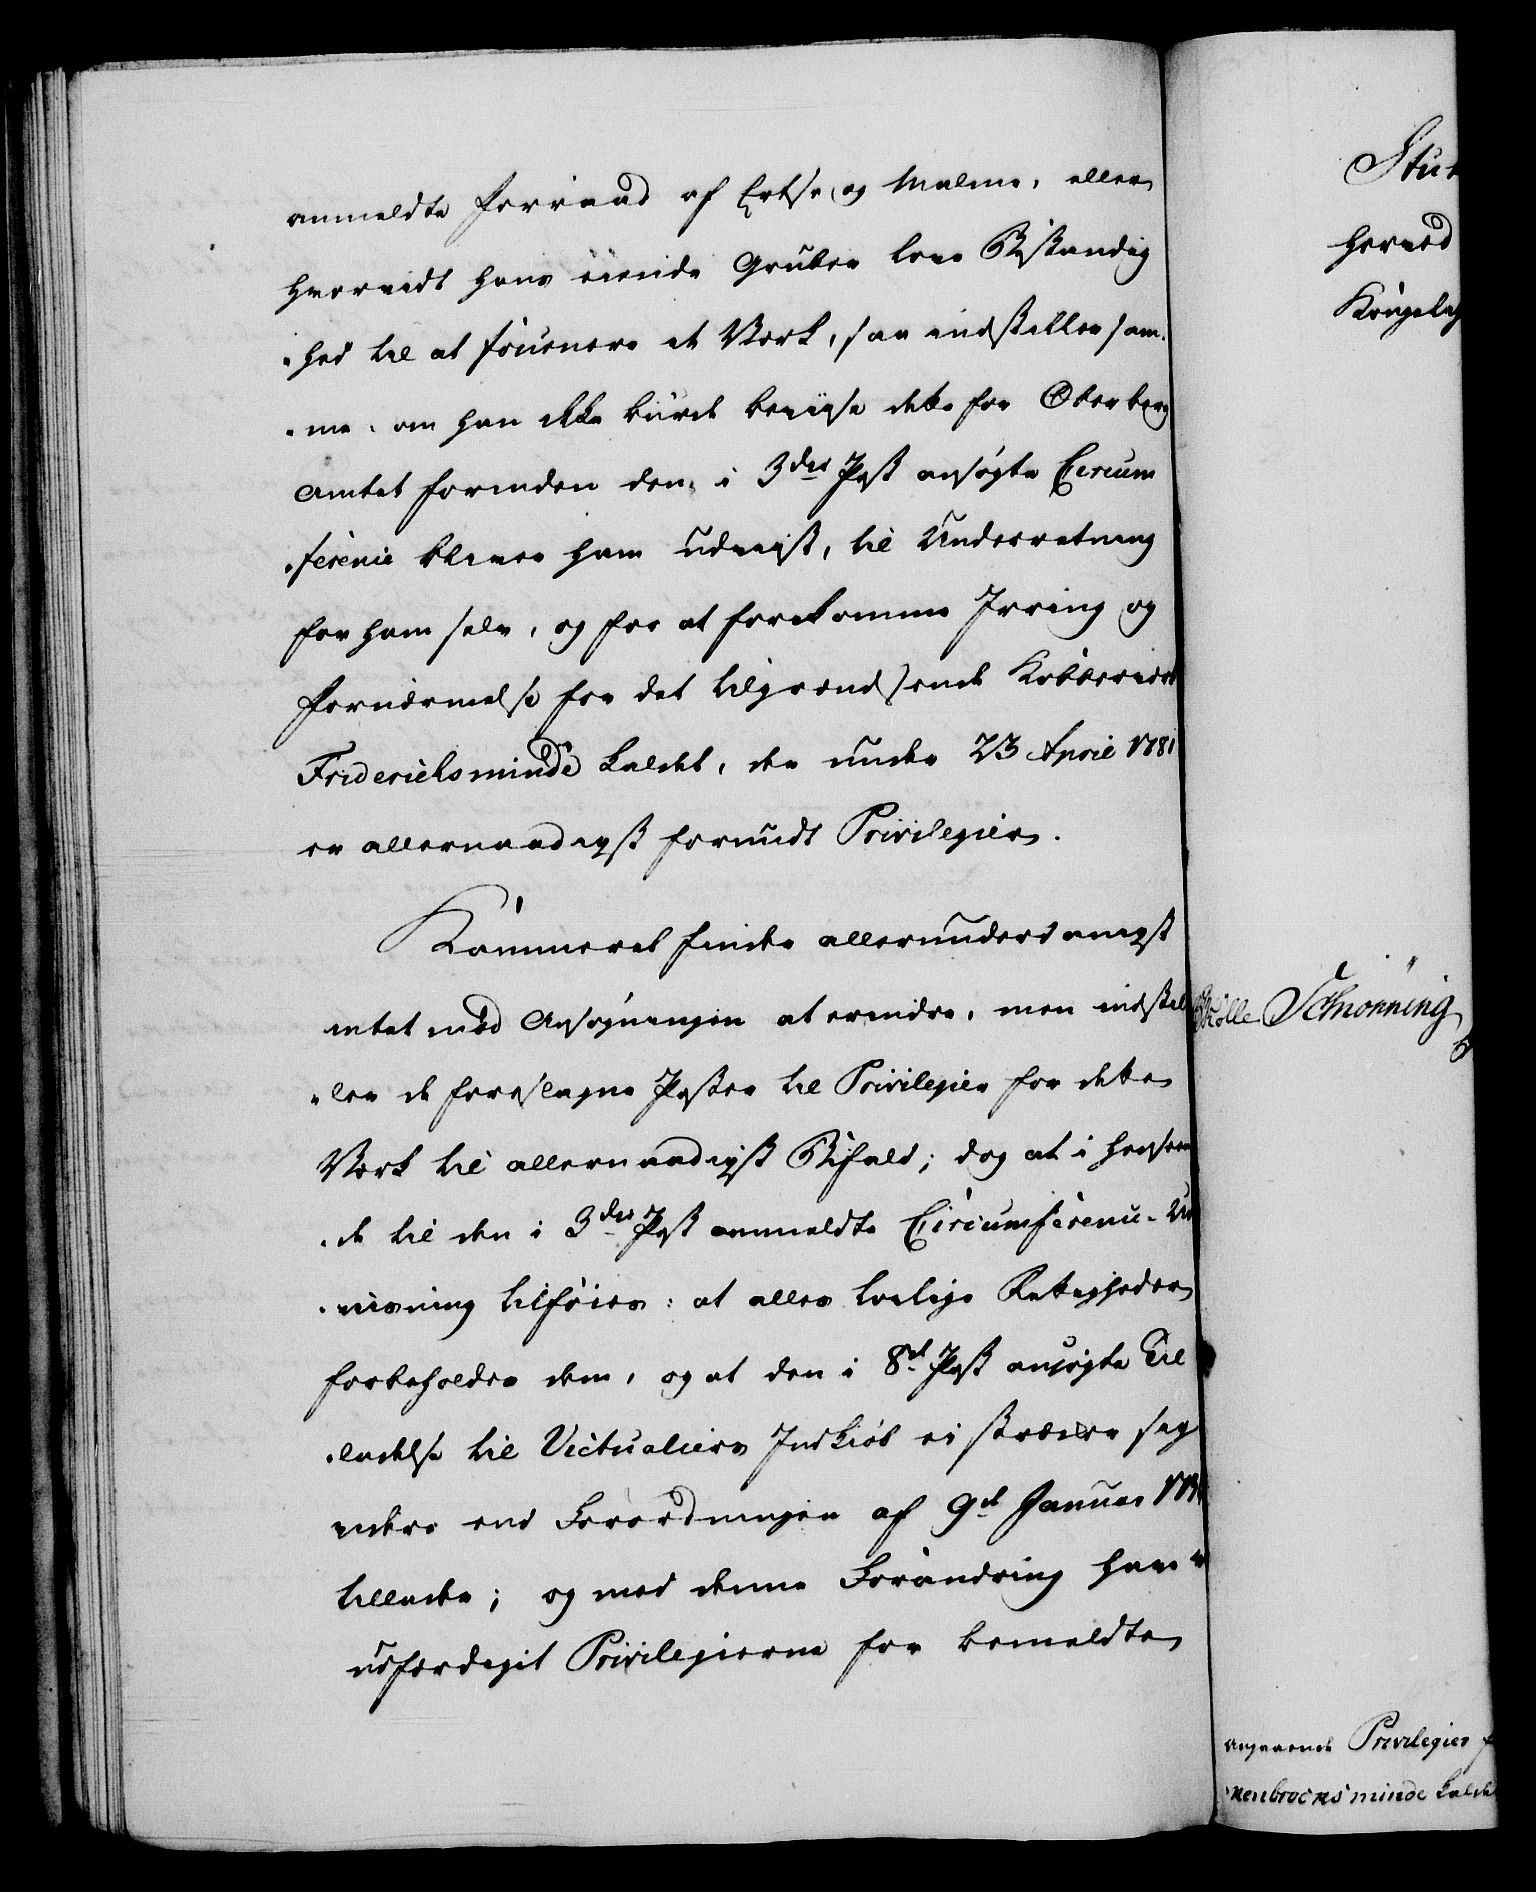 anmeldte forraad af Ertse og Malme, eller
hvorvidt hans eiende Gruber love Bestandig
-hed til at fournere et Værk, saa indstilles sam-
-me, om han ikke burde beviise dette for Oberberg
Amtet forinden den i 3die Post ansøgte Circum
-ference bliver ham udviist, til Underretning
for ham selv, og for at forekomme Irring og
fornærmelse for det tilgrændsende Kobberverk
Friderichsminde kaldet, der under 23 April 1781
er allernaadigst forundt Privilegier.
Kammeret finder allerunderdanigst
intet ved Ansøgningen at erindre, men indstil
-ler de foreslagne Poster til Privilegier for dette
Værk til allernaadigst Bifald; dog at i Henseen
-de til den i 3die Post anmeldte Circumference-Ud
-viisning tilføies: at alles lovlige Rettigheder
forbeholdes dem, og at den i 8de Post ansøgte Til
-ladelse til Victualiers Indkiøb ei strækker sig
videre end Forordningen af 9de Januar
tillader; og med denne Forandring have vi
udfærdiget Privilegierne for bemeldte
Stut
herved
Kongelig
Schiønning
angaaende Privilegier f
-nenbroens minde kaldet